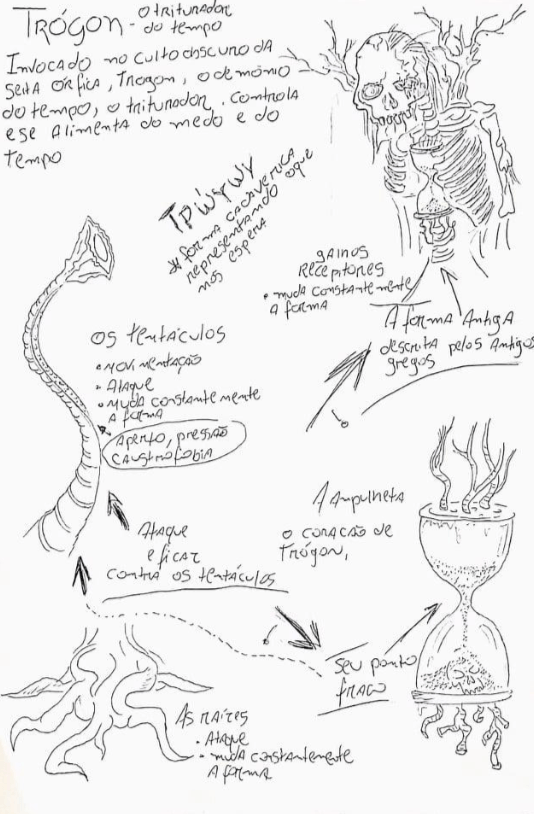 TRÓGON - o triturador
do tempo
Invocado no culto obscuro da
seita órfica, Trogon, o demônio
do tempo, o triturador. Controla
e se alimenta do medo e do
tempo
Τρώγων
forma cadaverica
representando o que
nos espera
galhos
receptores
• muda constantemente
a forma
A forma Antiga
descrita pelos Antigos
gregos
Os tentáculos
• movimentação
• Ataque
• muda constantemente
a forma
Aperto, pressão
caustrofobia
Ataque
eficaz
contra os tentáculos
A Ampulheta
o coração de
Trógon,
seu ponto
fraco
As raízes
• Ataque
• muda constantemente
A forma